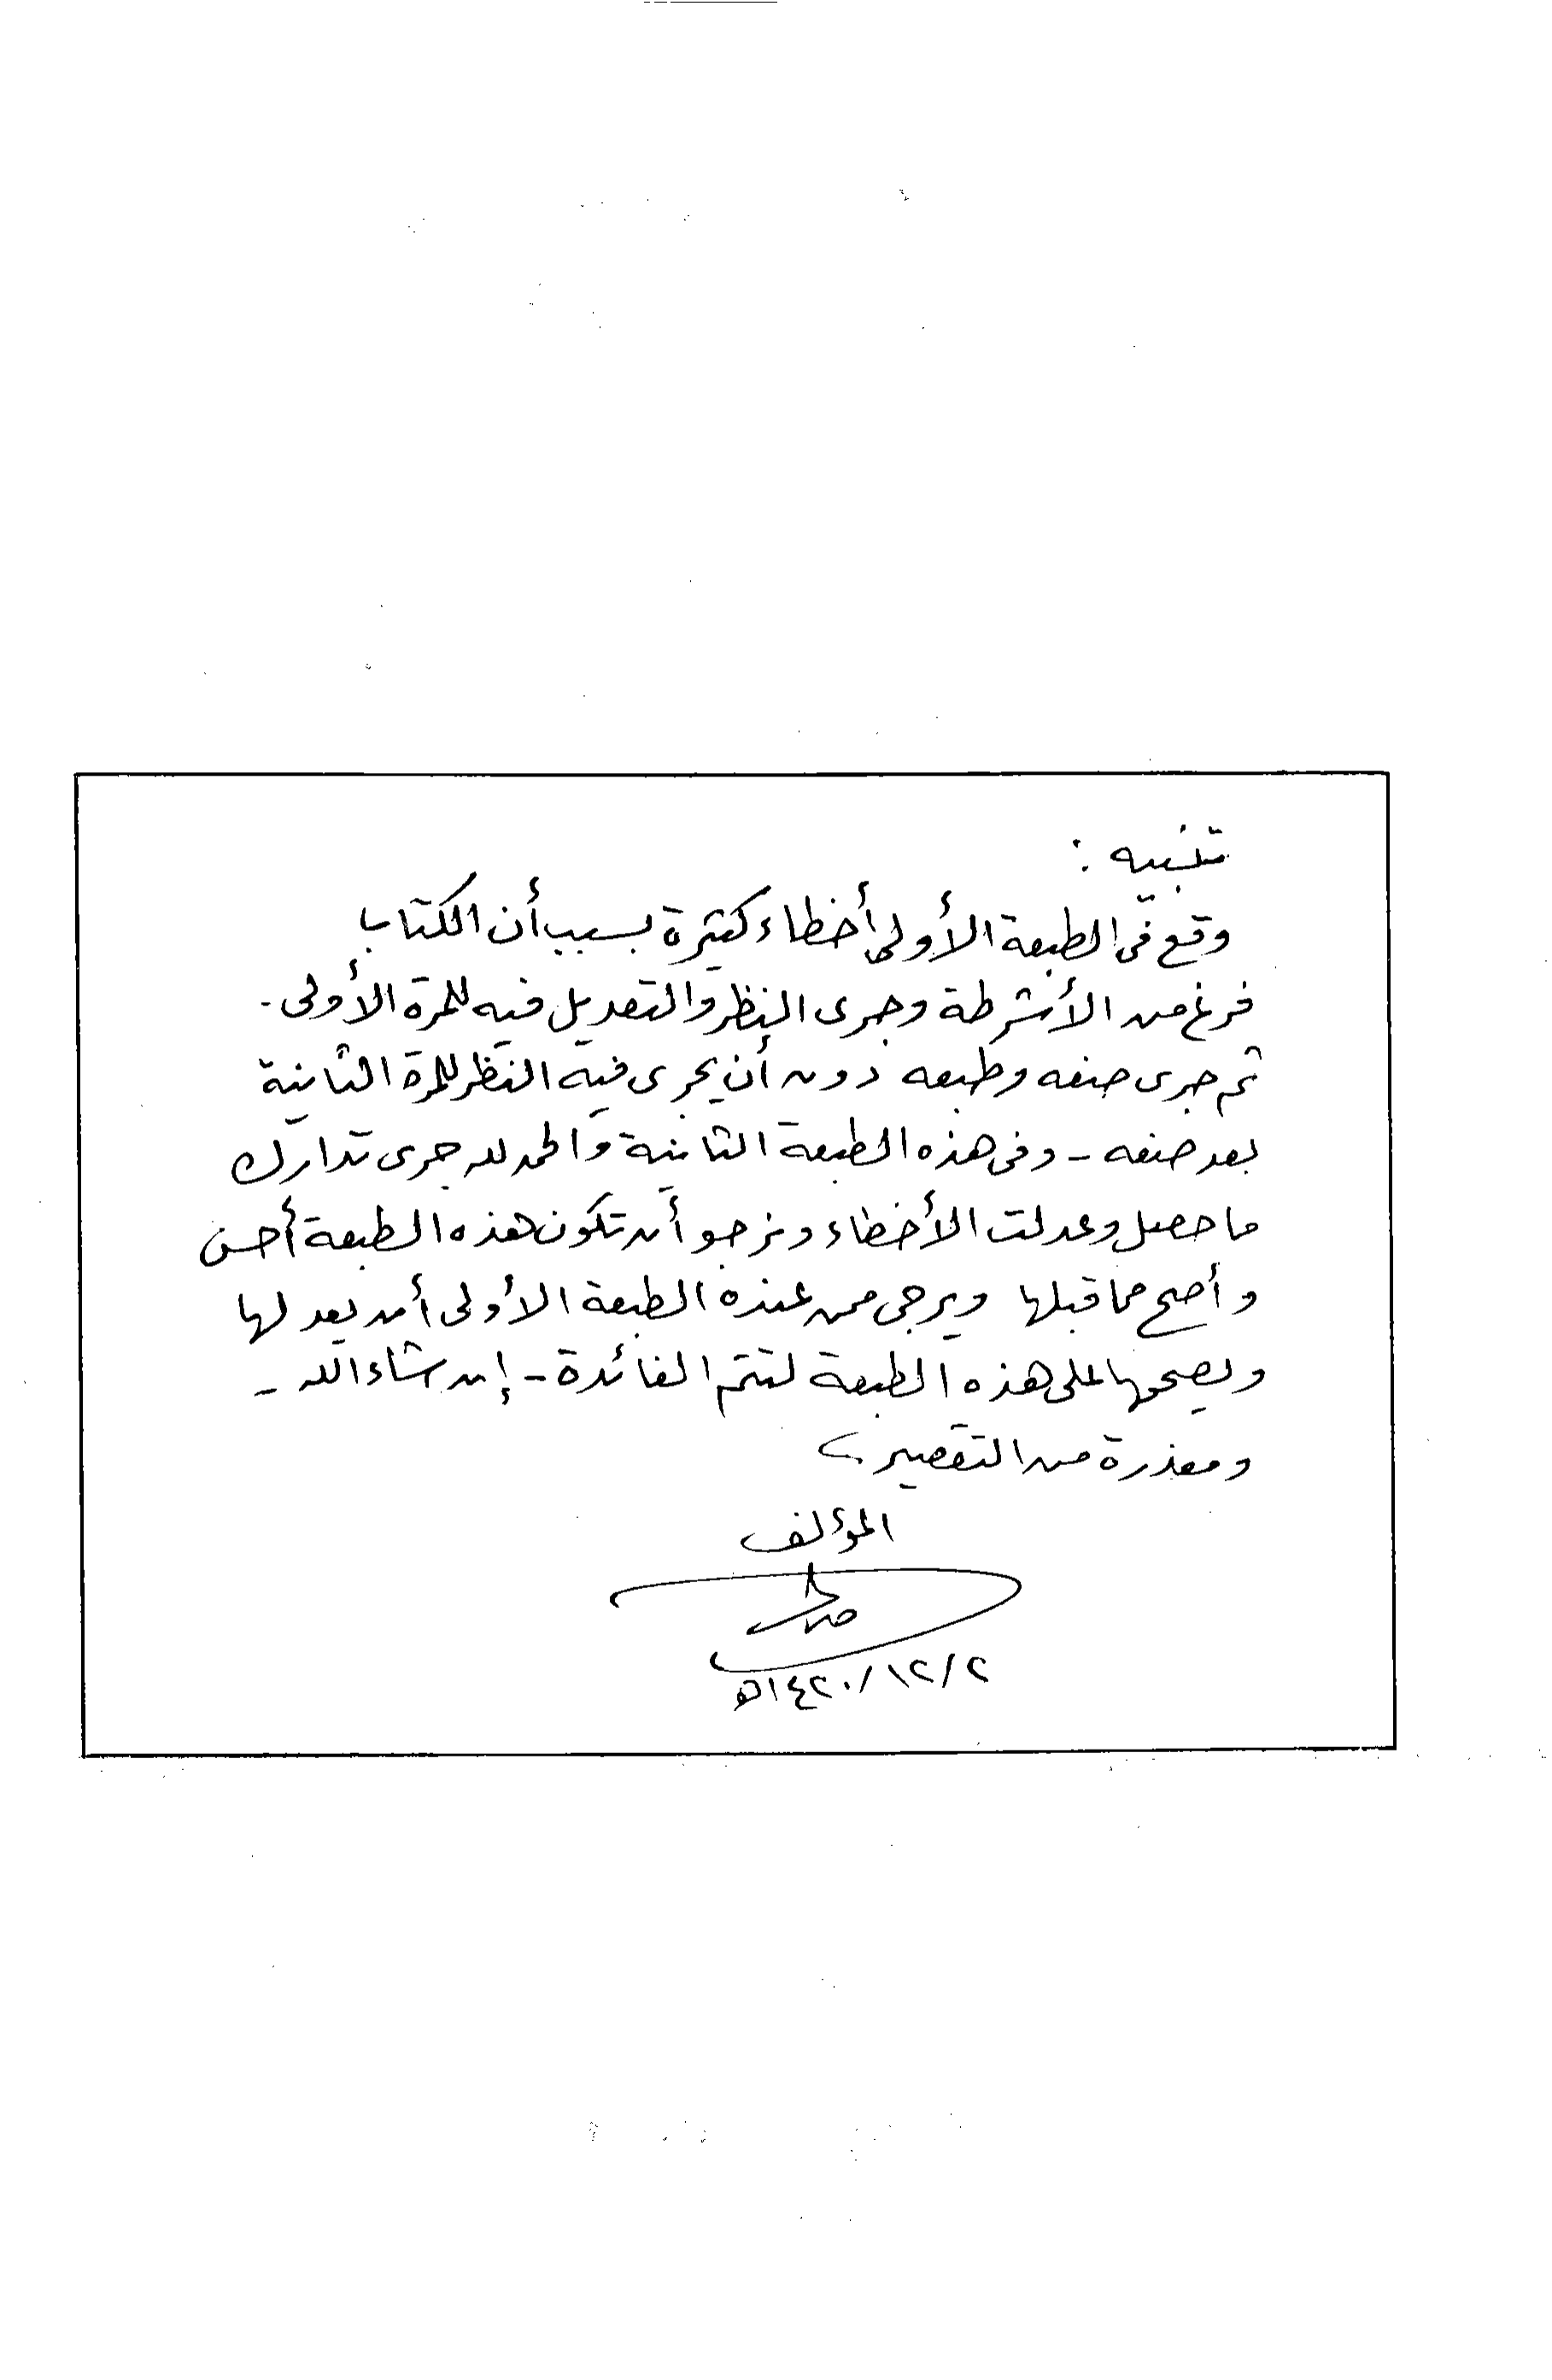 تنبيه :
وقع في الطبعة الأولى أخطاء كثيرة بسبب أن الكتاب
فرغ من الأشرطة وجرى النظر والتعديل فيه للمرة الأولى .
ثم جرى صفه وطبعه دون أن يجرى فيه النظر للمرة الثانية
بعد صفه - وفي هذه الطبعة الثانية والحمد لله جرى تدارك
ما حصل وعدلت الأخطاء ونرجو أن تكون هذه الطبعة أحسن
وأصح مما قبلها ويرجى ممن عنده الطبعة الأولى أن يعدلها
ويصححها على هذه الطبعة لتتم الفائدة - إن شاء الله -
ومعذرة من التقصير
المؤلف
١٤٢٠/١٢/٢هـ